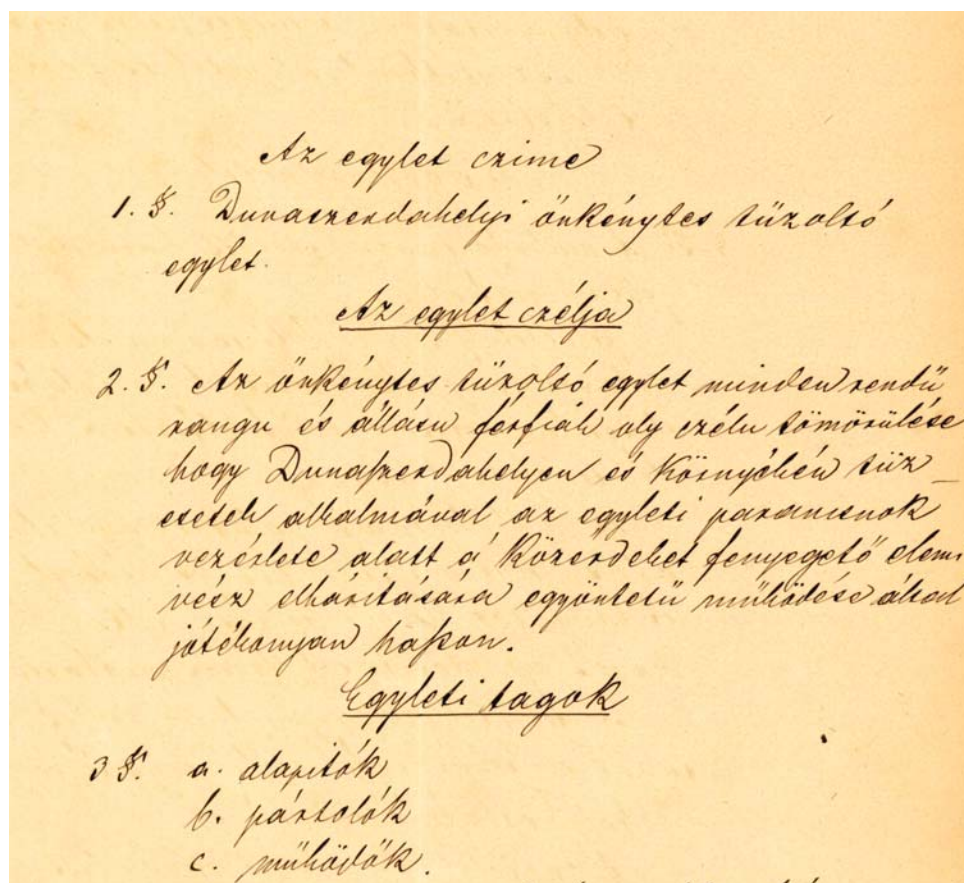 Az egylet czime
1. §. Dunaszerdahelyi önkénytes tüzoltó
egylet.
Az egylet czélja
2. §. Az önkénytes tüzoltó egylet minden rendü
rangu és állásu férfiak oly czélu tömörülése
hogy Dunaszerdahelyen és környékén tüz
esetek alkalmával az egyleti parancsnok
vezérlete alatt a közérdeket fenyegető elemi
vész elháritására egyöntetü müködése által
jótékonyan hasson.
Egyleti tagok
3 §. a. alapitók
b. pártolók
c. müködők.